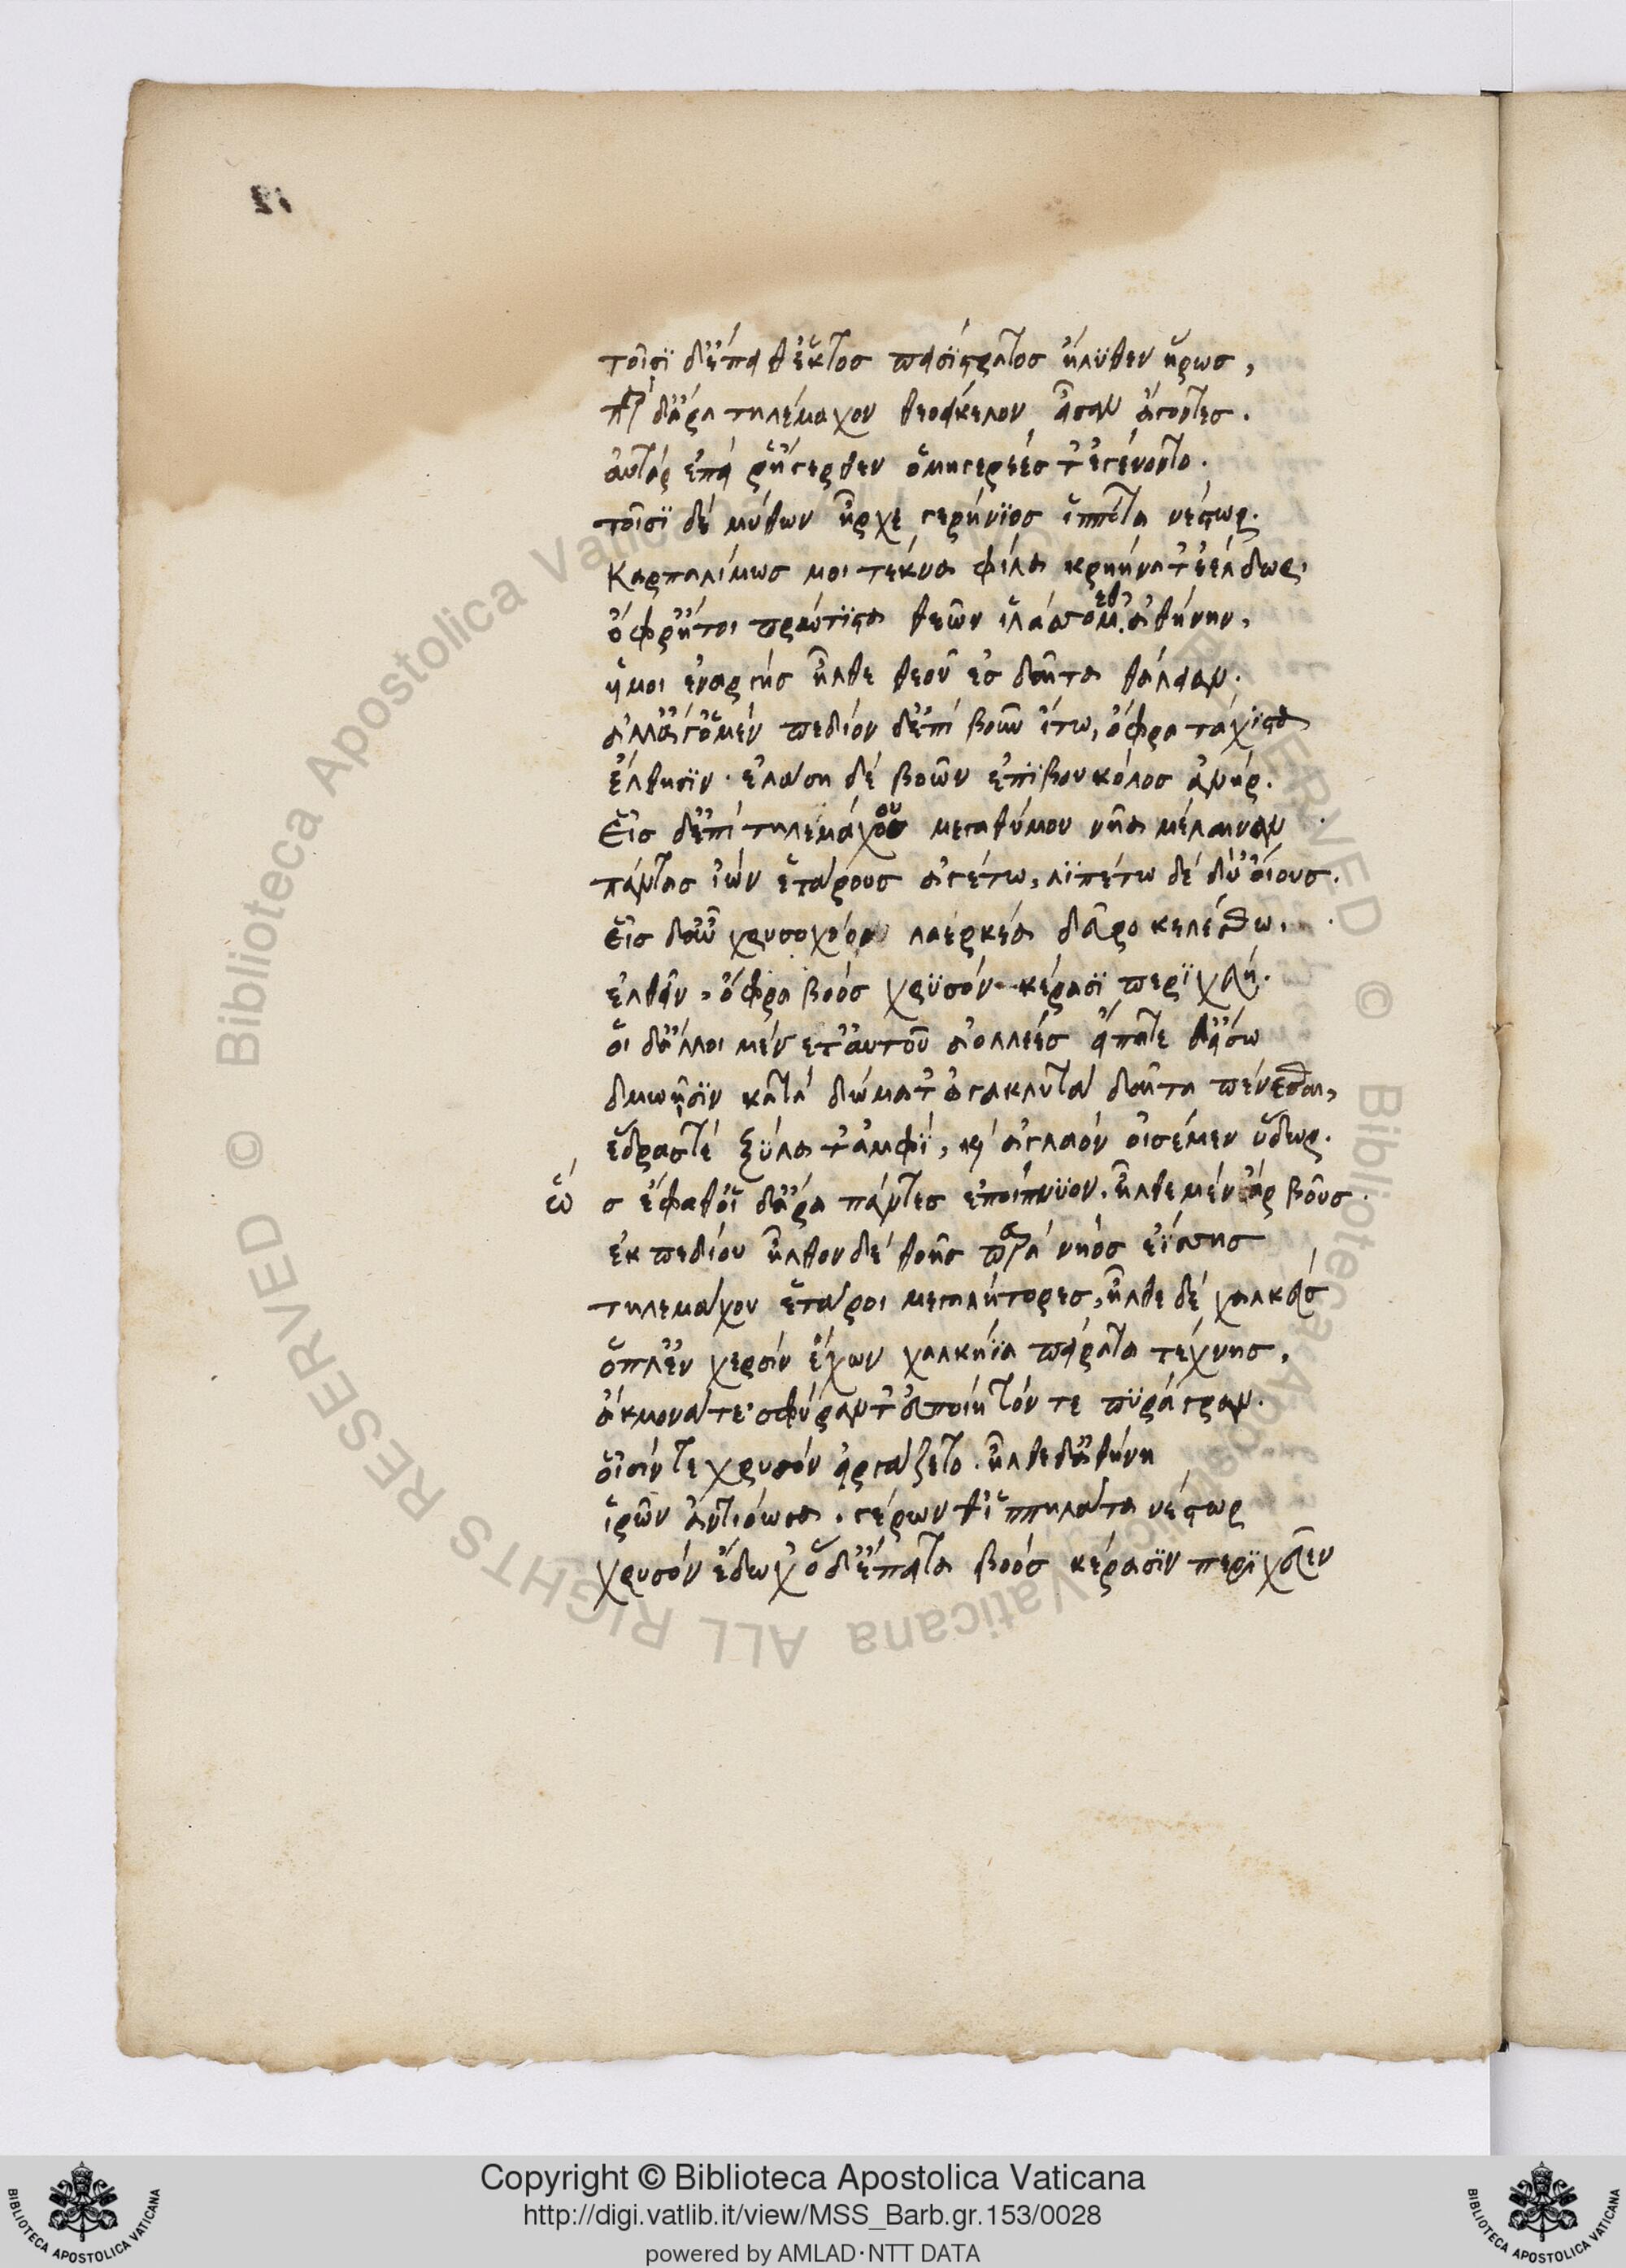 τοῖσϊ δ' ἔπειθ' ἕκτος πεισίστρατος ἤλυθεν ἥρως,
πὰρ δ' ἄρα τηλέμαχον θεοείκελον εἷσαν ἄγοντες.
αὐτὰρ ἐπεί ῥ' ἤγερθεν ὁμηγερέες τ' ἐγένοντο.
τοῖσϊ δὲ μύθων ἦρχε γερήνϊος ἱππότα νέστωρ.
Καρπαλίμως μοι τέκνα φίλα κρηήνατ' ἐέλδωρ.
ὄφρ' ἤτοι πρώτϊστα θεῶν ἱλάσομ' ἀθήνην,
ἥ μοι ἐναργὴς ἦλθε θεοῦ ἐς δαῖτα θάλειαν.
ἀλλ' ἄγ' ὁ μὲν πεδίον δ' ἐπὶ βοῦν ἴτω, ὄφρα τάχϊστα
ἔλθησϊν. ἐλάση δὲ βοῶν ἐπϊβουκόλος ἀνήρ.
Εἷς δ' ἐπὶ τηλεμάχου μεγαθύμου νῆα μέλαιναν
πάντας ἰὼν ἑτάρους ἀγέτω, λϊπέτω δὲ δύ' οἴους.
Εἷς δ' αὖ χρυσοχόον λαέρκεα δεῦρο κελέσθω,
ἐλθεῖν, ὄφρα βοὸς χρϋσὸν κέρασϊ περϊχεύῃ.
οἱ δ' ἄλλοι μένετ' αὐτοῦ ἀολλέες εἴπατε δ' εἴσω
δμωῇσϊν κατὰ δώματ' ἀγακλυτὰ δαῖτα πένεσθαι,
ἕδρας τὲ ξϋλα τ' ἀμφϊ, καὶ ἀγλαὸν οἰσέμεν ὕδωρ.
ὣς ἔφαθ' οἱ δ' ἄρα πάντες ἐποίπνϋον. ἦλθε μὲν ἂρ βοῦς.
ἐκ πεδίου ἦλθον δὲ θοῆς παρὰ νηὸς ἐΐσης
τηλεμάχου ἕταροι μεγαλήτορες, ἦλθε δὲ χαλκεὺς
ὅπλ' ἐν χερσὶν ἔχων χαλκήϊα πείρατα τέχνης,
ἄκμονά τε σφύραν τ' εὐποίητόν τε πϋράγραν.
οἷσίν τε χρυσὸν εἰργάζετο. ἦλθε δ' ἀθήνη
ἱρῶν ἀντιόωσα. γέρων θ' ἱππηλάτα νέστωρ
χρυσὸν ἔδωχ' ὁ δ' ἔπειτα βοὸς κέρασϊν περϊχεῦεν
Copyright © Biblioteca Apostolica Vaticana
http://digi.vatlib.it/view/MSS_Barb.gr.153/0028
powered by AMLAD·NTT DATA
BIBLIOTECA APOSTOLICA VATICANA
BIBLIOTECA APOSTOLICA VATICANA
© Biblioteca Apostolica Vaticana ALL RIGHTS RESERVED © Biblioteca Apostolica Vaticana ALL RIGHTS RESERVED